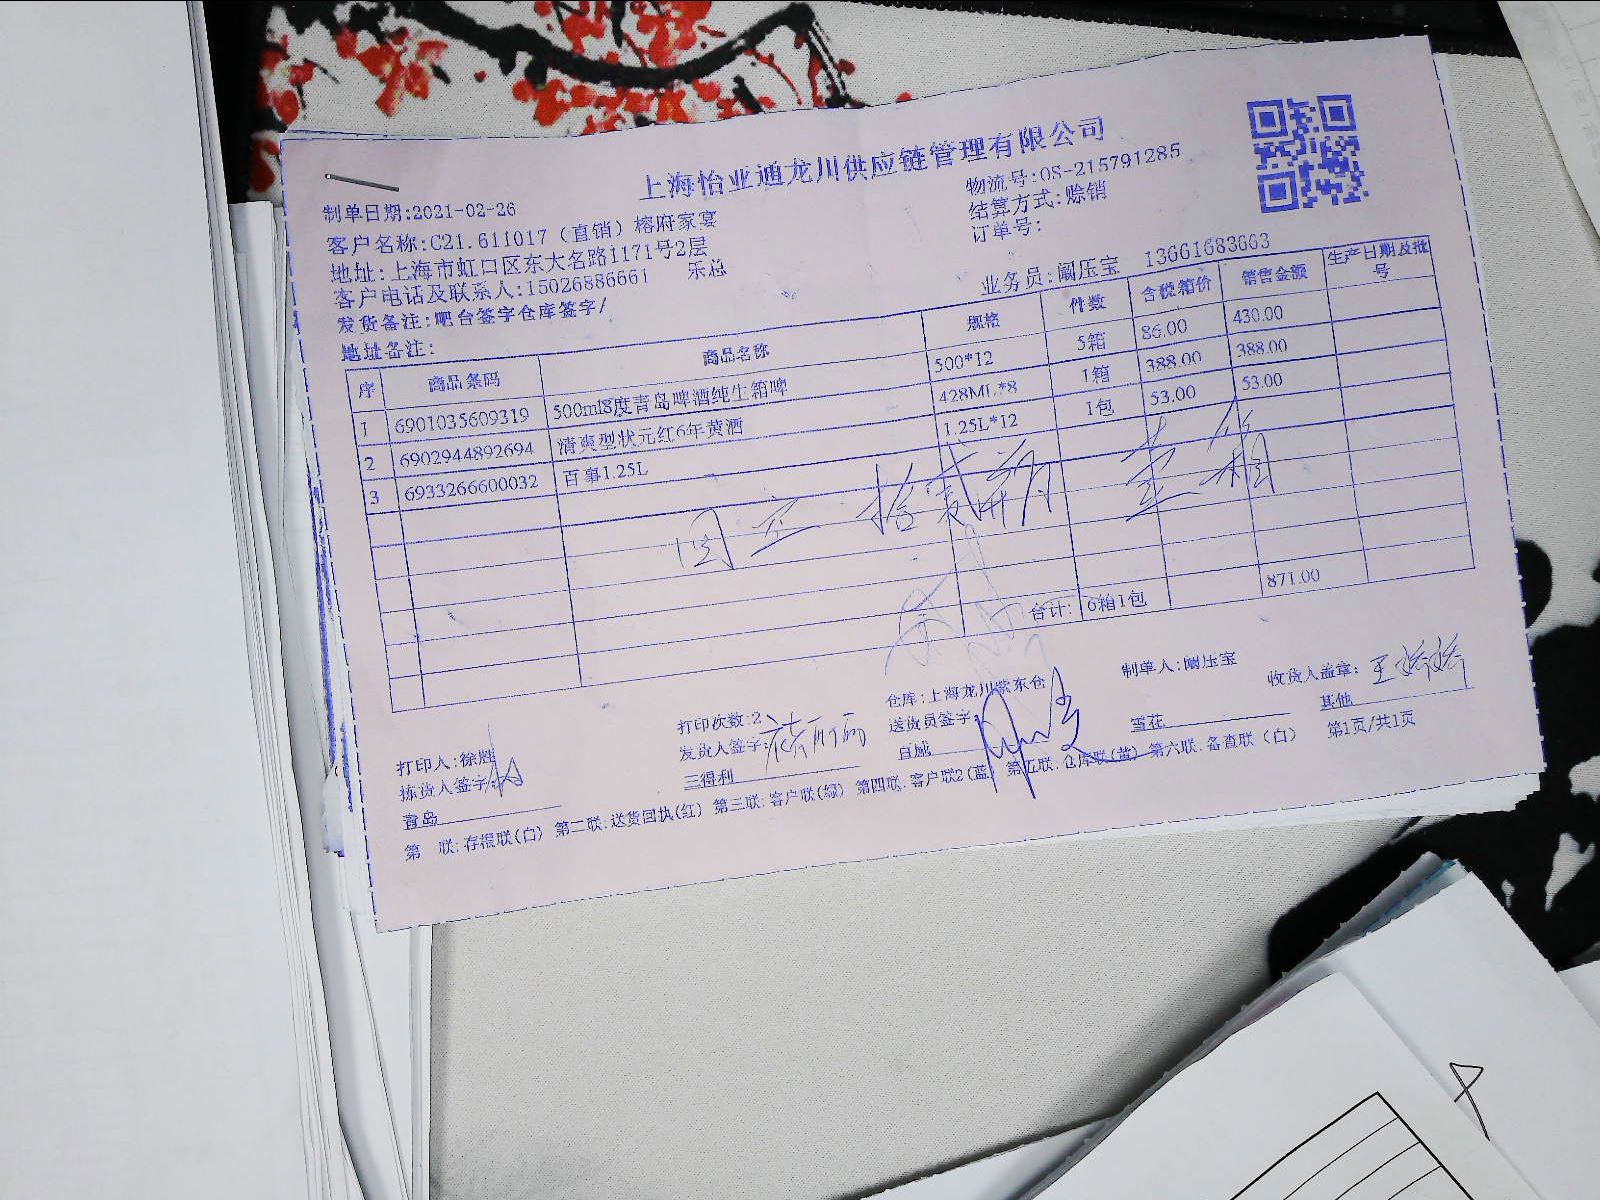 上海怡亚通龙川供应链管理有限公司
制单日期:2021-02-26
物流号:OS-215791285
客户名称:C21.611017（直销）榕府家宴
结算方式:赊销
地址:上海市虹口区东大名路1171号2层
订单号:
客户电话及联系人:15026886661 乐总
业务员:阚压宝 13661683663
发货备注:吧台签字仓库签字/
地址备注:
序 商品条码 商品名称 规格 件数 含税箱价 销售金额 生产日期及批号
1 6901035609319 500ml8度青岛啤酒纯生箱啤 500*12 5箱 86.00 430.00
2 6902944892694 清爽型状元红6年黄酒 428ML*8 1箱 388.00 388.00
3 6933266600032 百事1.25L 1.25L*12 1包 53.00 53.00
拾贰瓶 壹箱
合计: 6箱1包 871.00
打印人:徐胜
打印次数:2
仓库:上海龙川紫东仓
制单人:阚压宝
收货人盖章:
拣货人签字:
发货人签字:
送货员签字:
青岛
三得利
百威
雪花
其他
第 联:存根联(白) 第二联:送货回执(红) 第三联:客户联(绿) 第四联:客户联2(蓝) 第五联:仓库联(黄) 第六联:备查联(白) 第1页/共1页